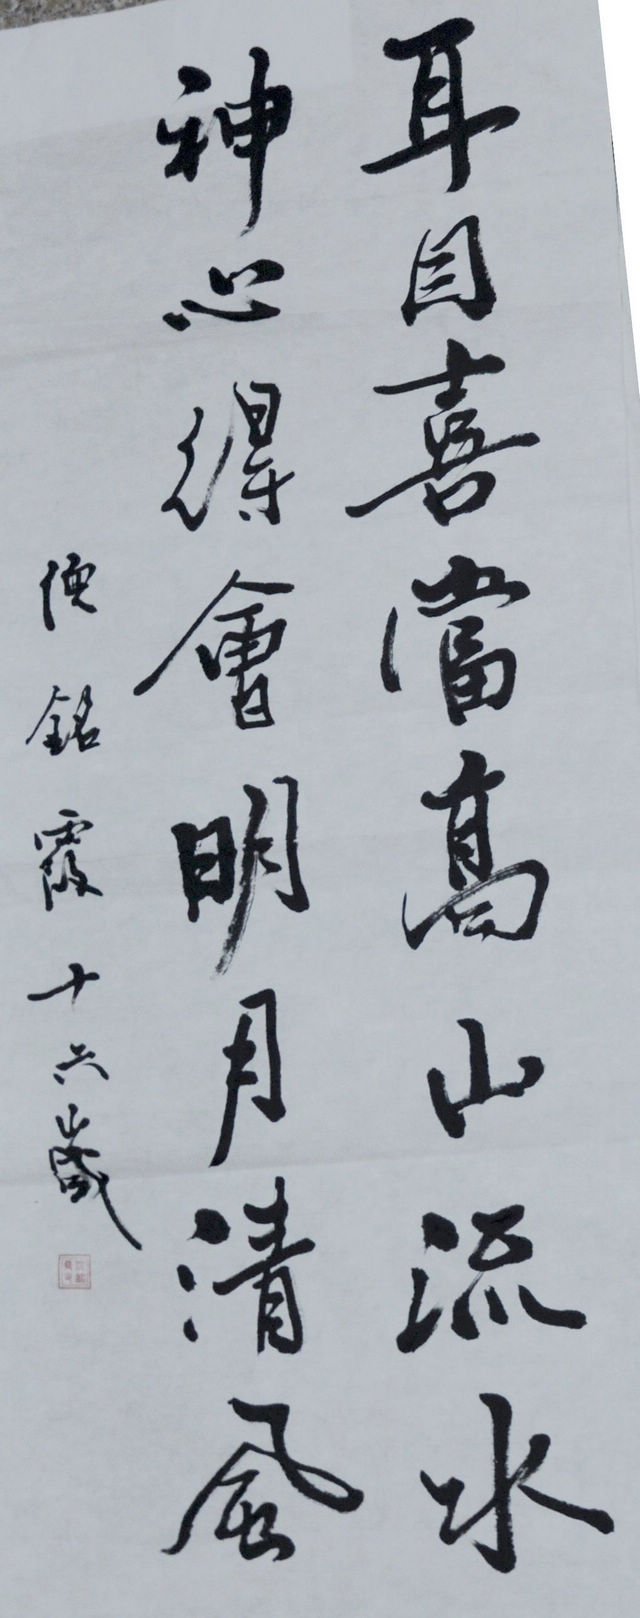 耳目喜當高山流水
神心得會明月清風
銘霞十六歲